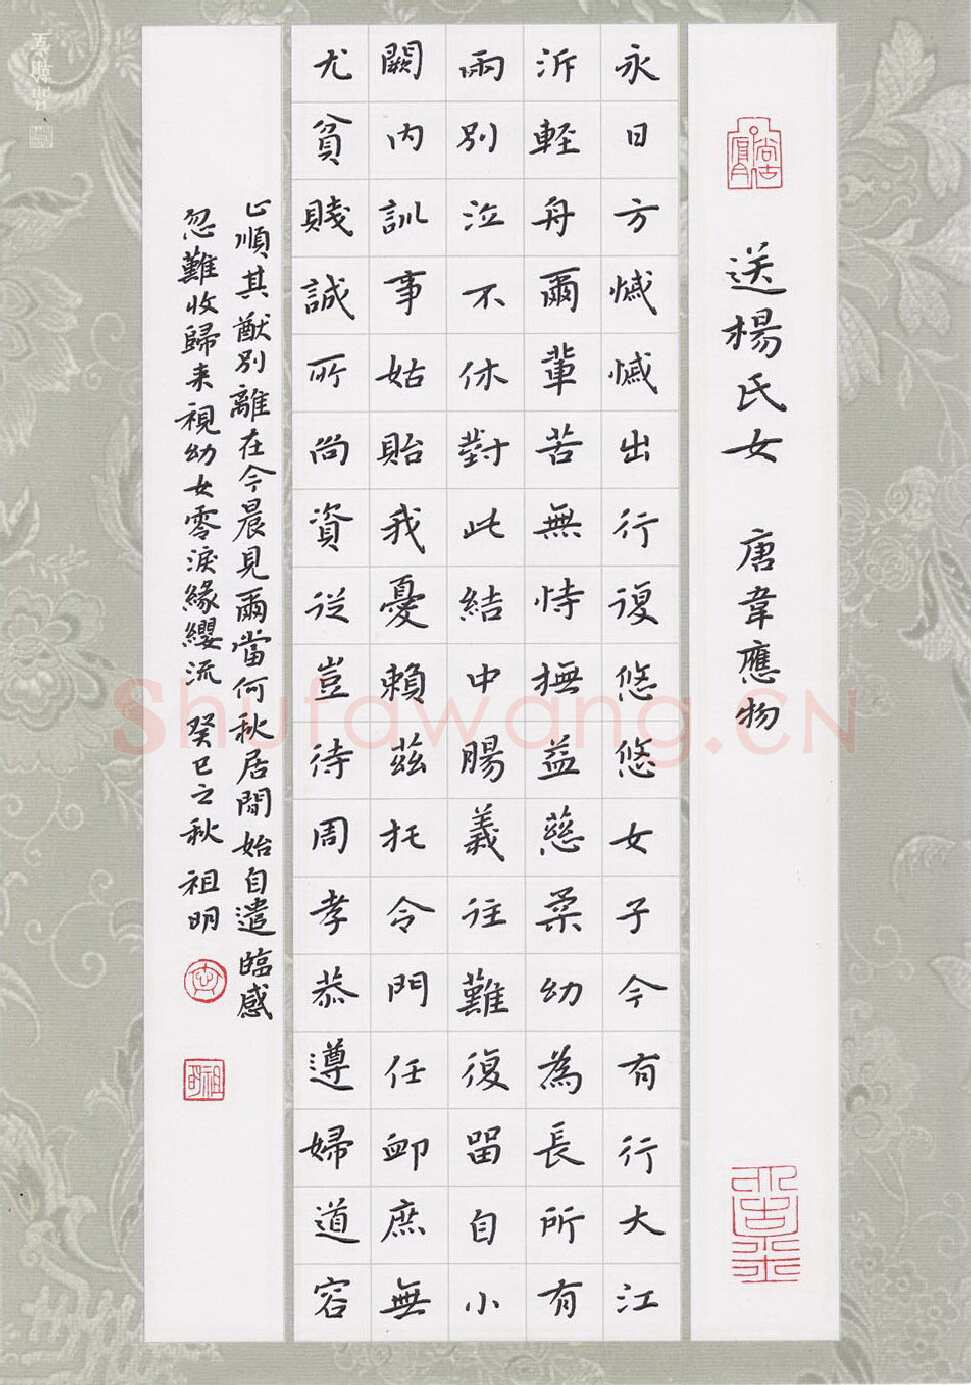 送楊氏女 唐韋應物
永日方慽慽出行復悠悠女子今有行大江
泝輕舟爾輩苦無恃撫益慈柔幼為長所有
兩別泣不休對此結中腸義往難復留自小
闕内訓事姑貽我憂賴茲托令門任卹庶無
尤貧賤誠所尚資從豈待周孝恭遵婦道容
止順其猷別離在今晨見爾當何秋居閒始自遣臨感
忽難收歸来視幼女零淚緣纓流 癸巳之秋 祖明
Shufawang.CN